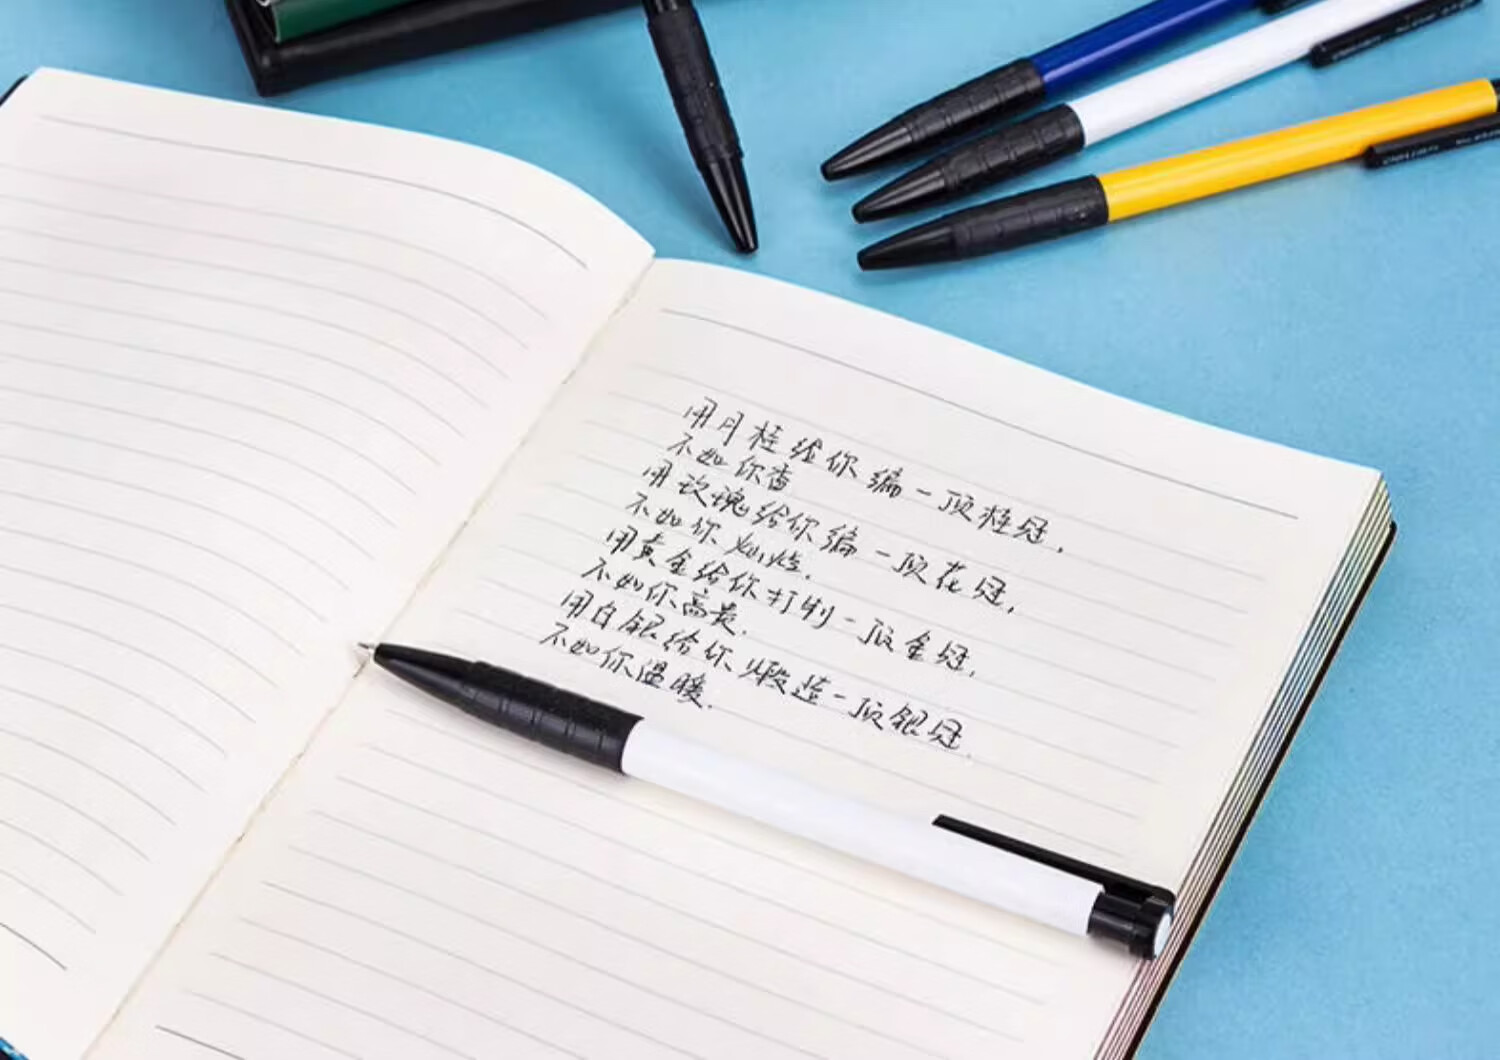 用月桂给你编一顶桂冠,
不如你香
用玫瑰给你编一顶花冠,
不如你灿烂.
用黄金给你打制一顶金冠,
不如你高贵.
用白银给你煅造一顶银冠.
不如你温暖.